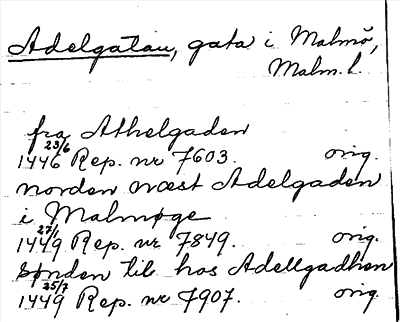 Adelgatan, gata i Malmö,
Malm. l.
fra Athelgaden
23/6
1446 Rep. nr 7603. orig.
norden næst Adelgaden
i Malmøge
27/1
1449 Rep. nr 7849. orig.
sønden til hos Adellgadhen
25/7
1449 Rep. nr 7907. orig